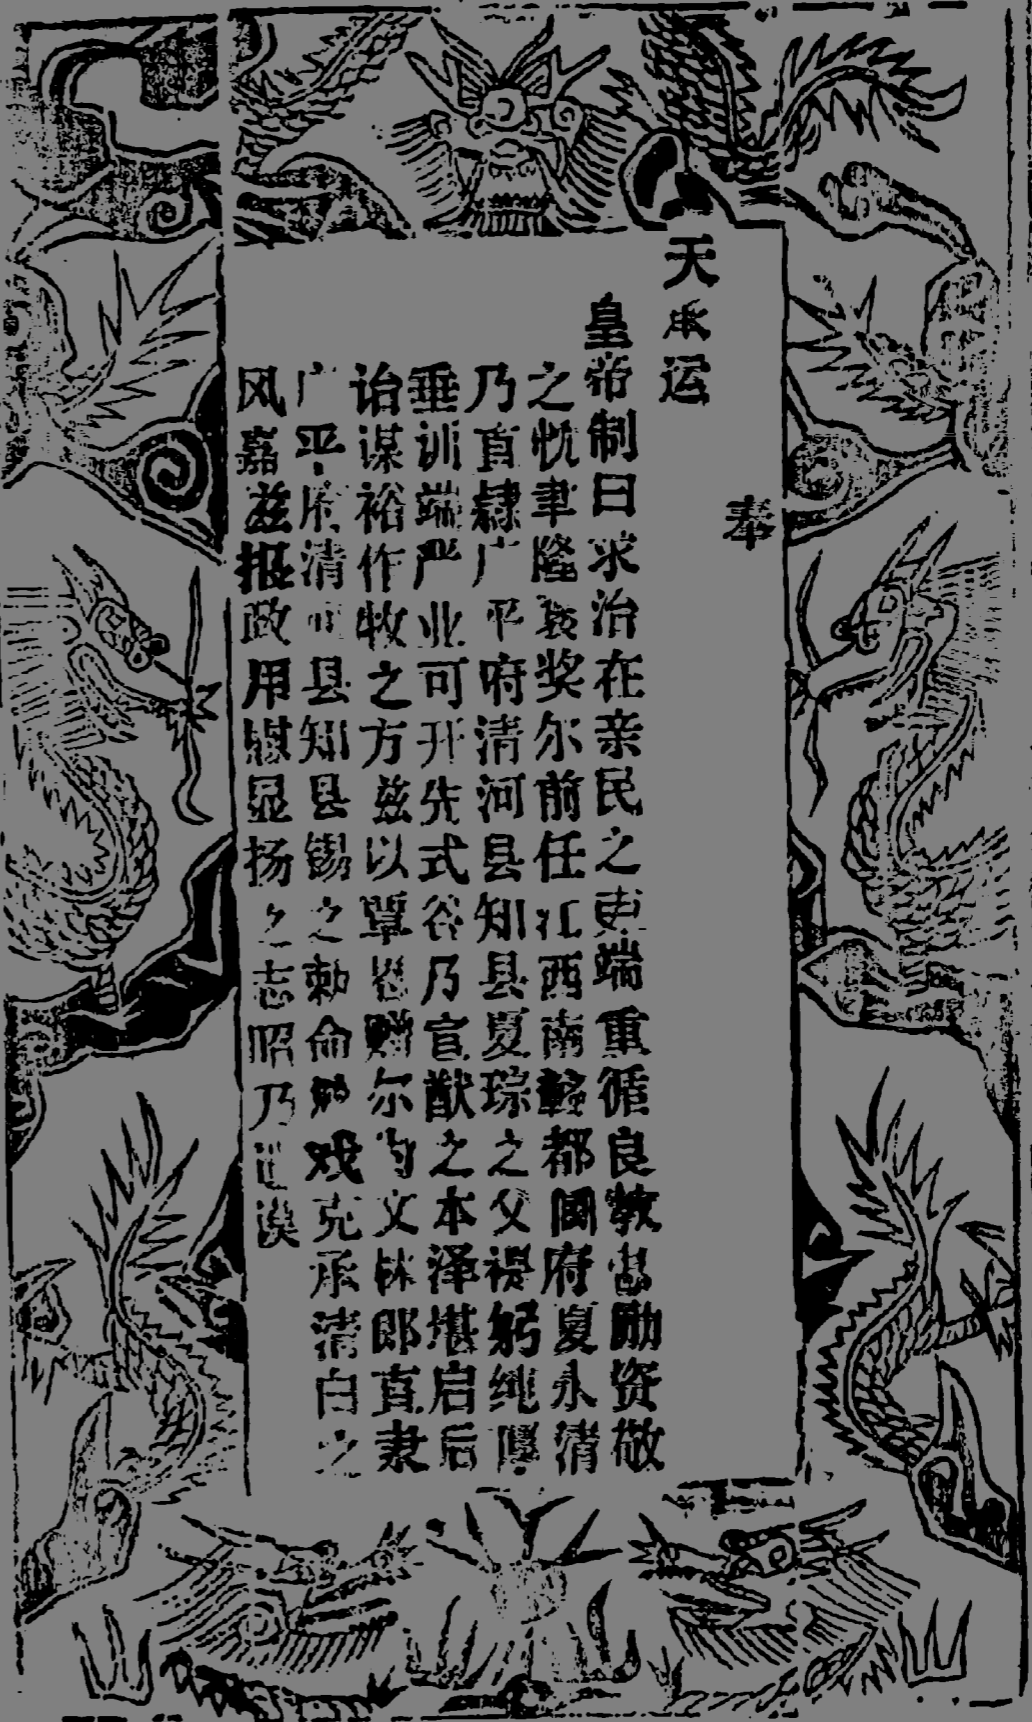 奉
天承运
皇帝制曰求治在亲民之吏端重循良教忠励资敬
之忱聿隆褒奖尔前任江西南赣都阃府夏永清
乃直隸广平府清河县知县夏琮之父禔躬纯厚
垂训端严业可开先式谷乃宣猷之本泽堪启后
诒谋裕作牧之方兹以覃恩赠尔为文林郎直隶
广平府清河县知县锡之勅命於戏克承清白之
风嘉兹报政用慰显扬之志昭乃遗谟